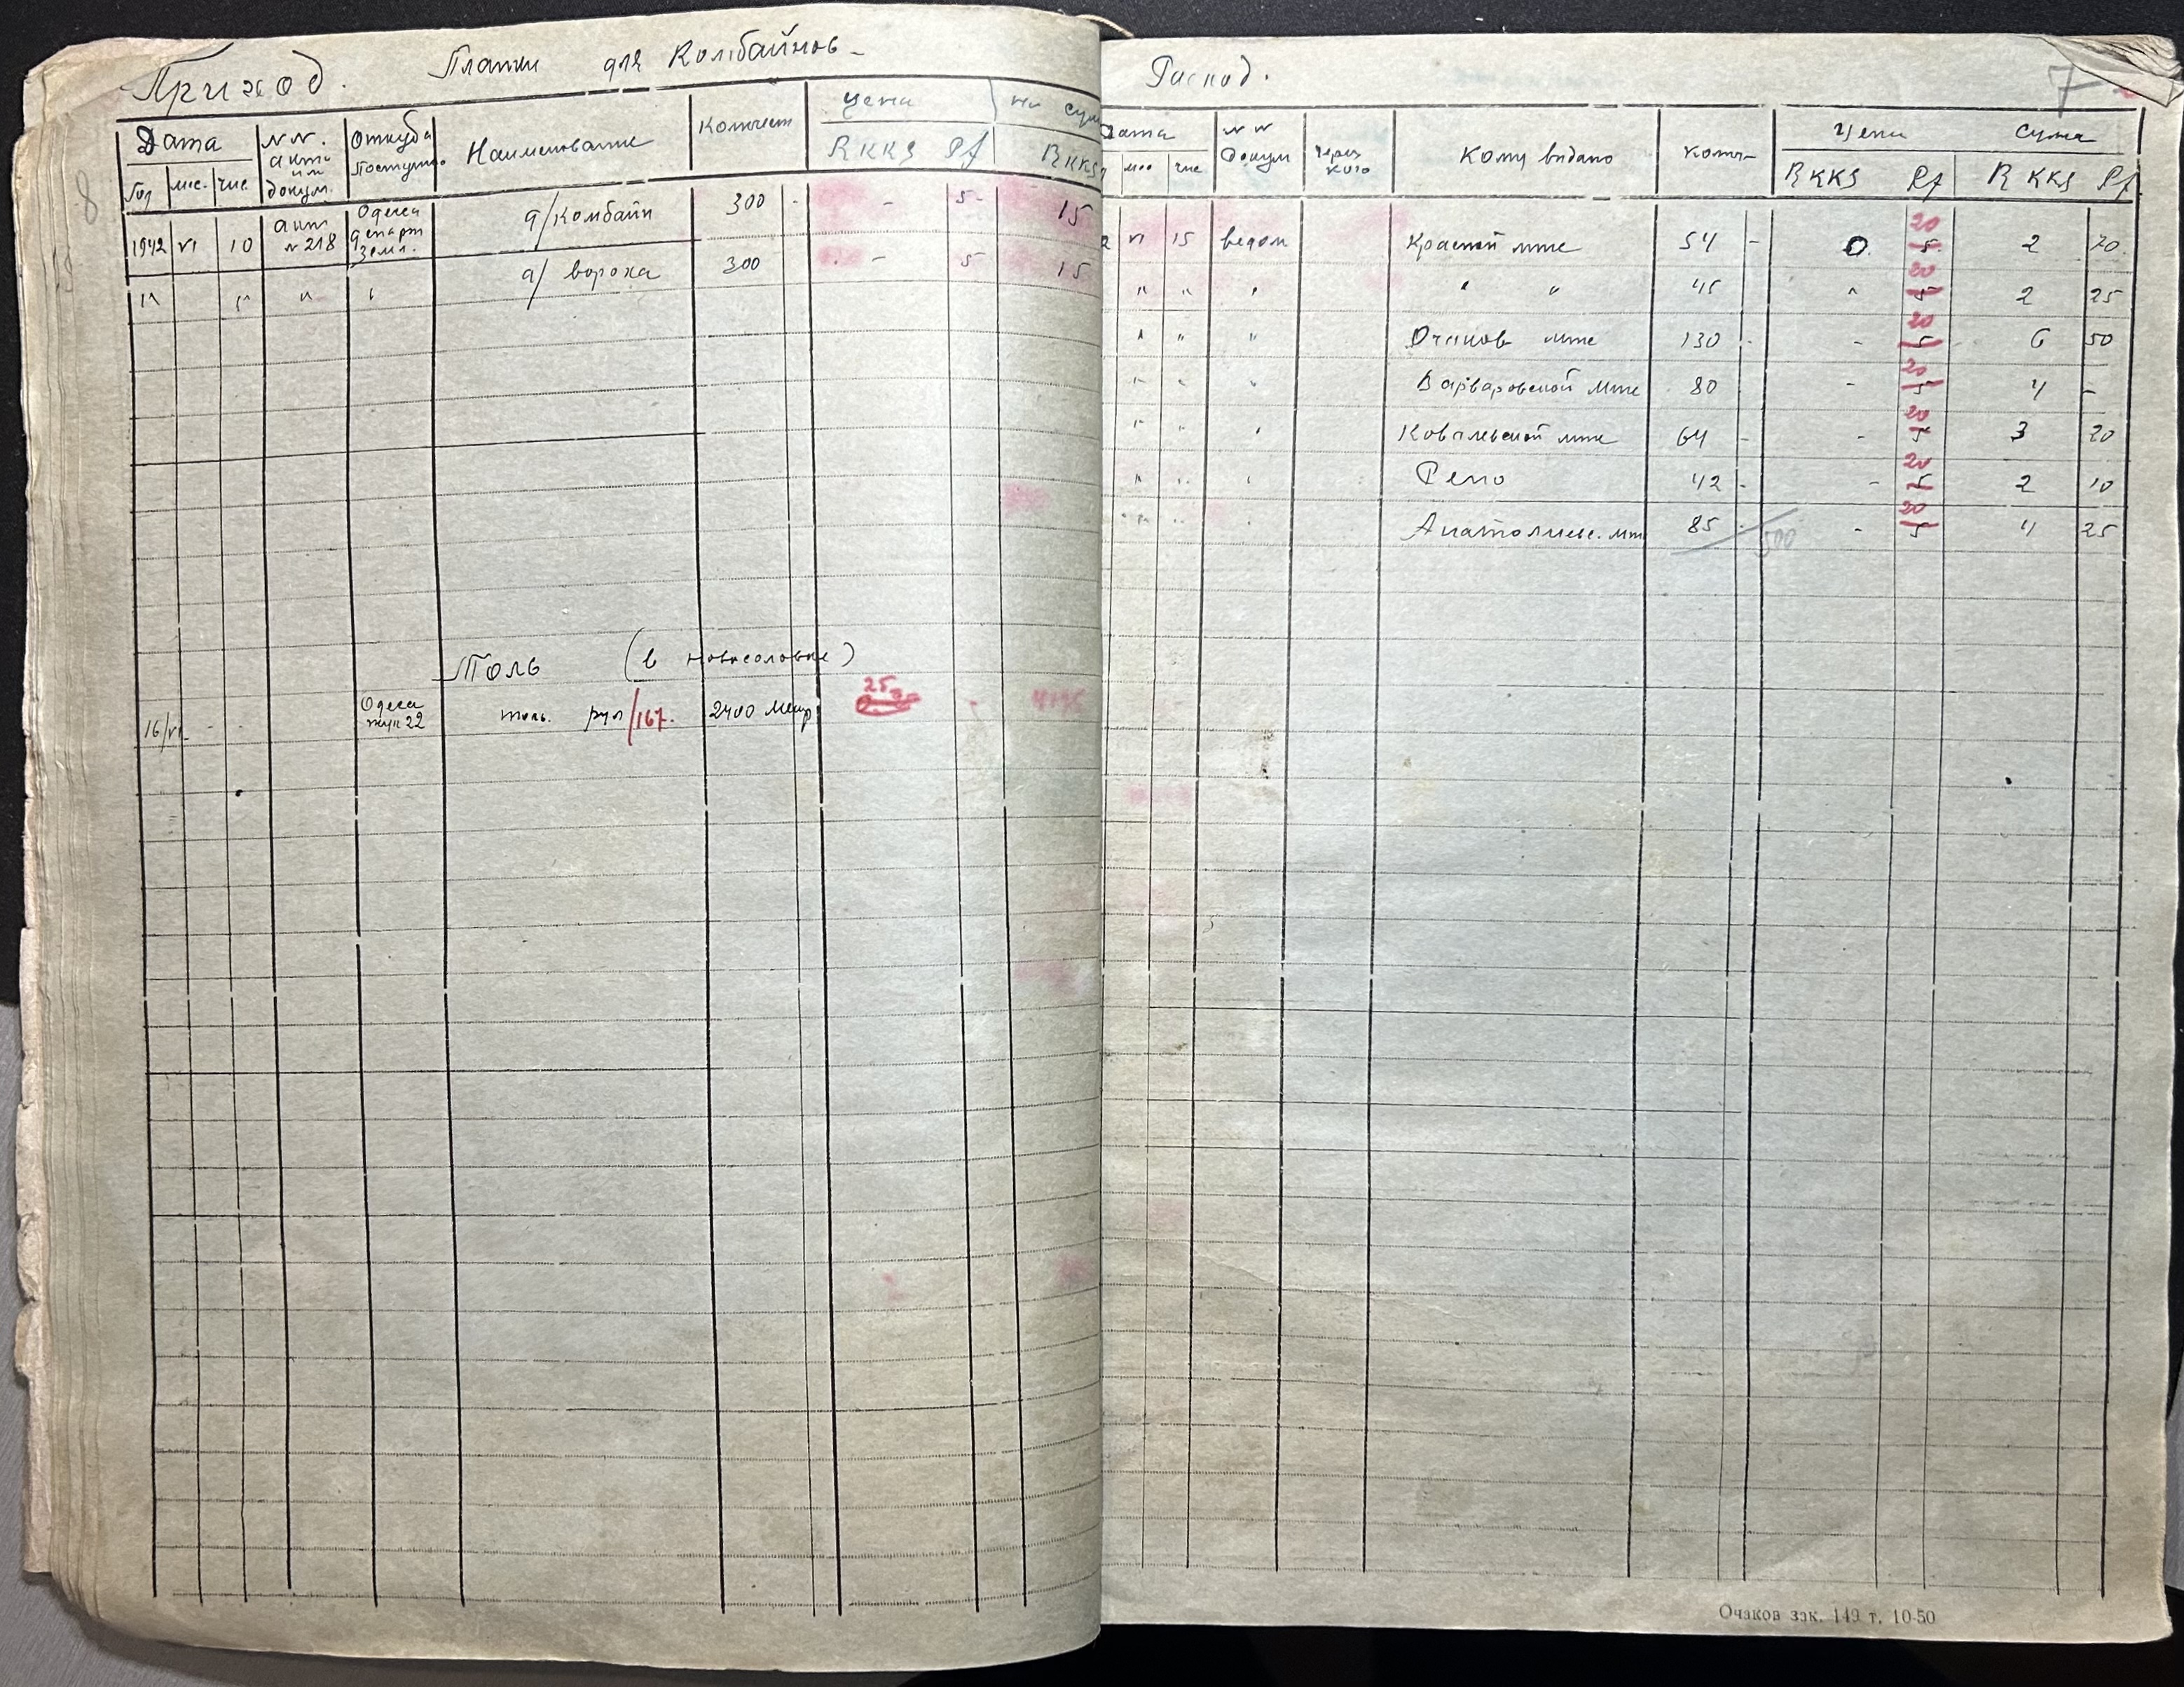 Приход. Планки для Комбайнов
Дата NN. акта или докум. Откуда Поступило Наименование Количест цена на сум
Год мес. чис. RKKS Pf RKKS
1942 VI 10 акт N 218 Одесса департ Земл. д/Комбайн 300 - - 5- 15
" " " " д/ вороха 300 - 5 15
Толь (в Новоселовке)
16/VI - - Одесса 22 толь. рул/167. 2400 Метр 25
8
Расход.
7
Дата NN Докум Через кого Кому видано колич- Цена Сума
мес чис RKKS Pf RKKS Pf
2 VI 15 ведом Красной мтс 54 - 0. 20 5 2 70
" " " " " 45 " 20 5 2 25
" " " Очаков мтс 130 - - 20 5 6 50
" " " Варваровской Мтс 80 - 20 5 4 -
" " " Ковалевской мтс 64 - - 20 5 3 20
" " " Рено 42 - - 20 5 2 10
" " " Анатолиев. мт 85 - - 20 5 4 25
500
Очаков зак. 149 т. 10-50